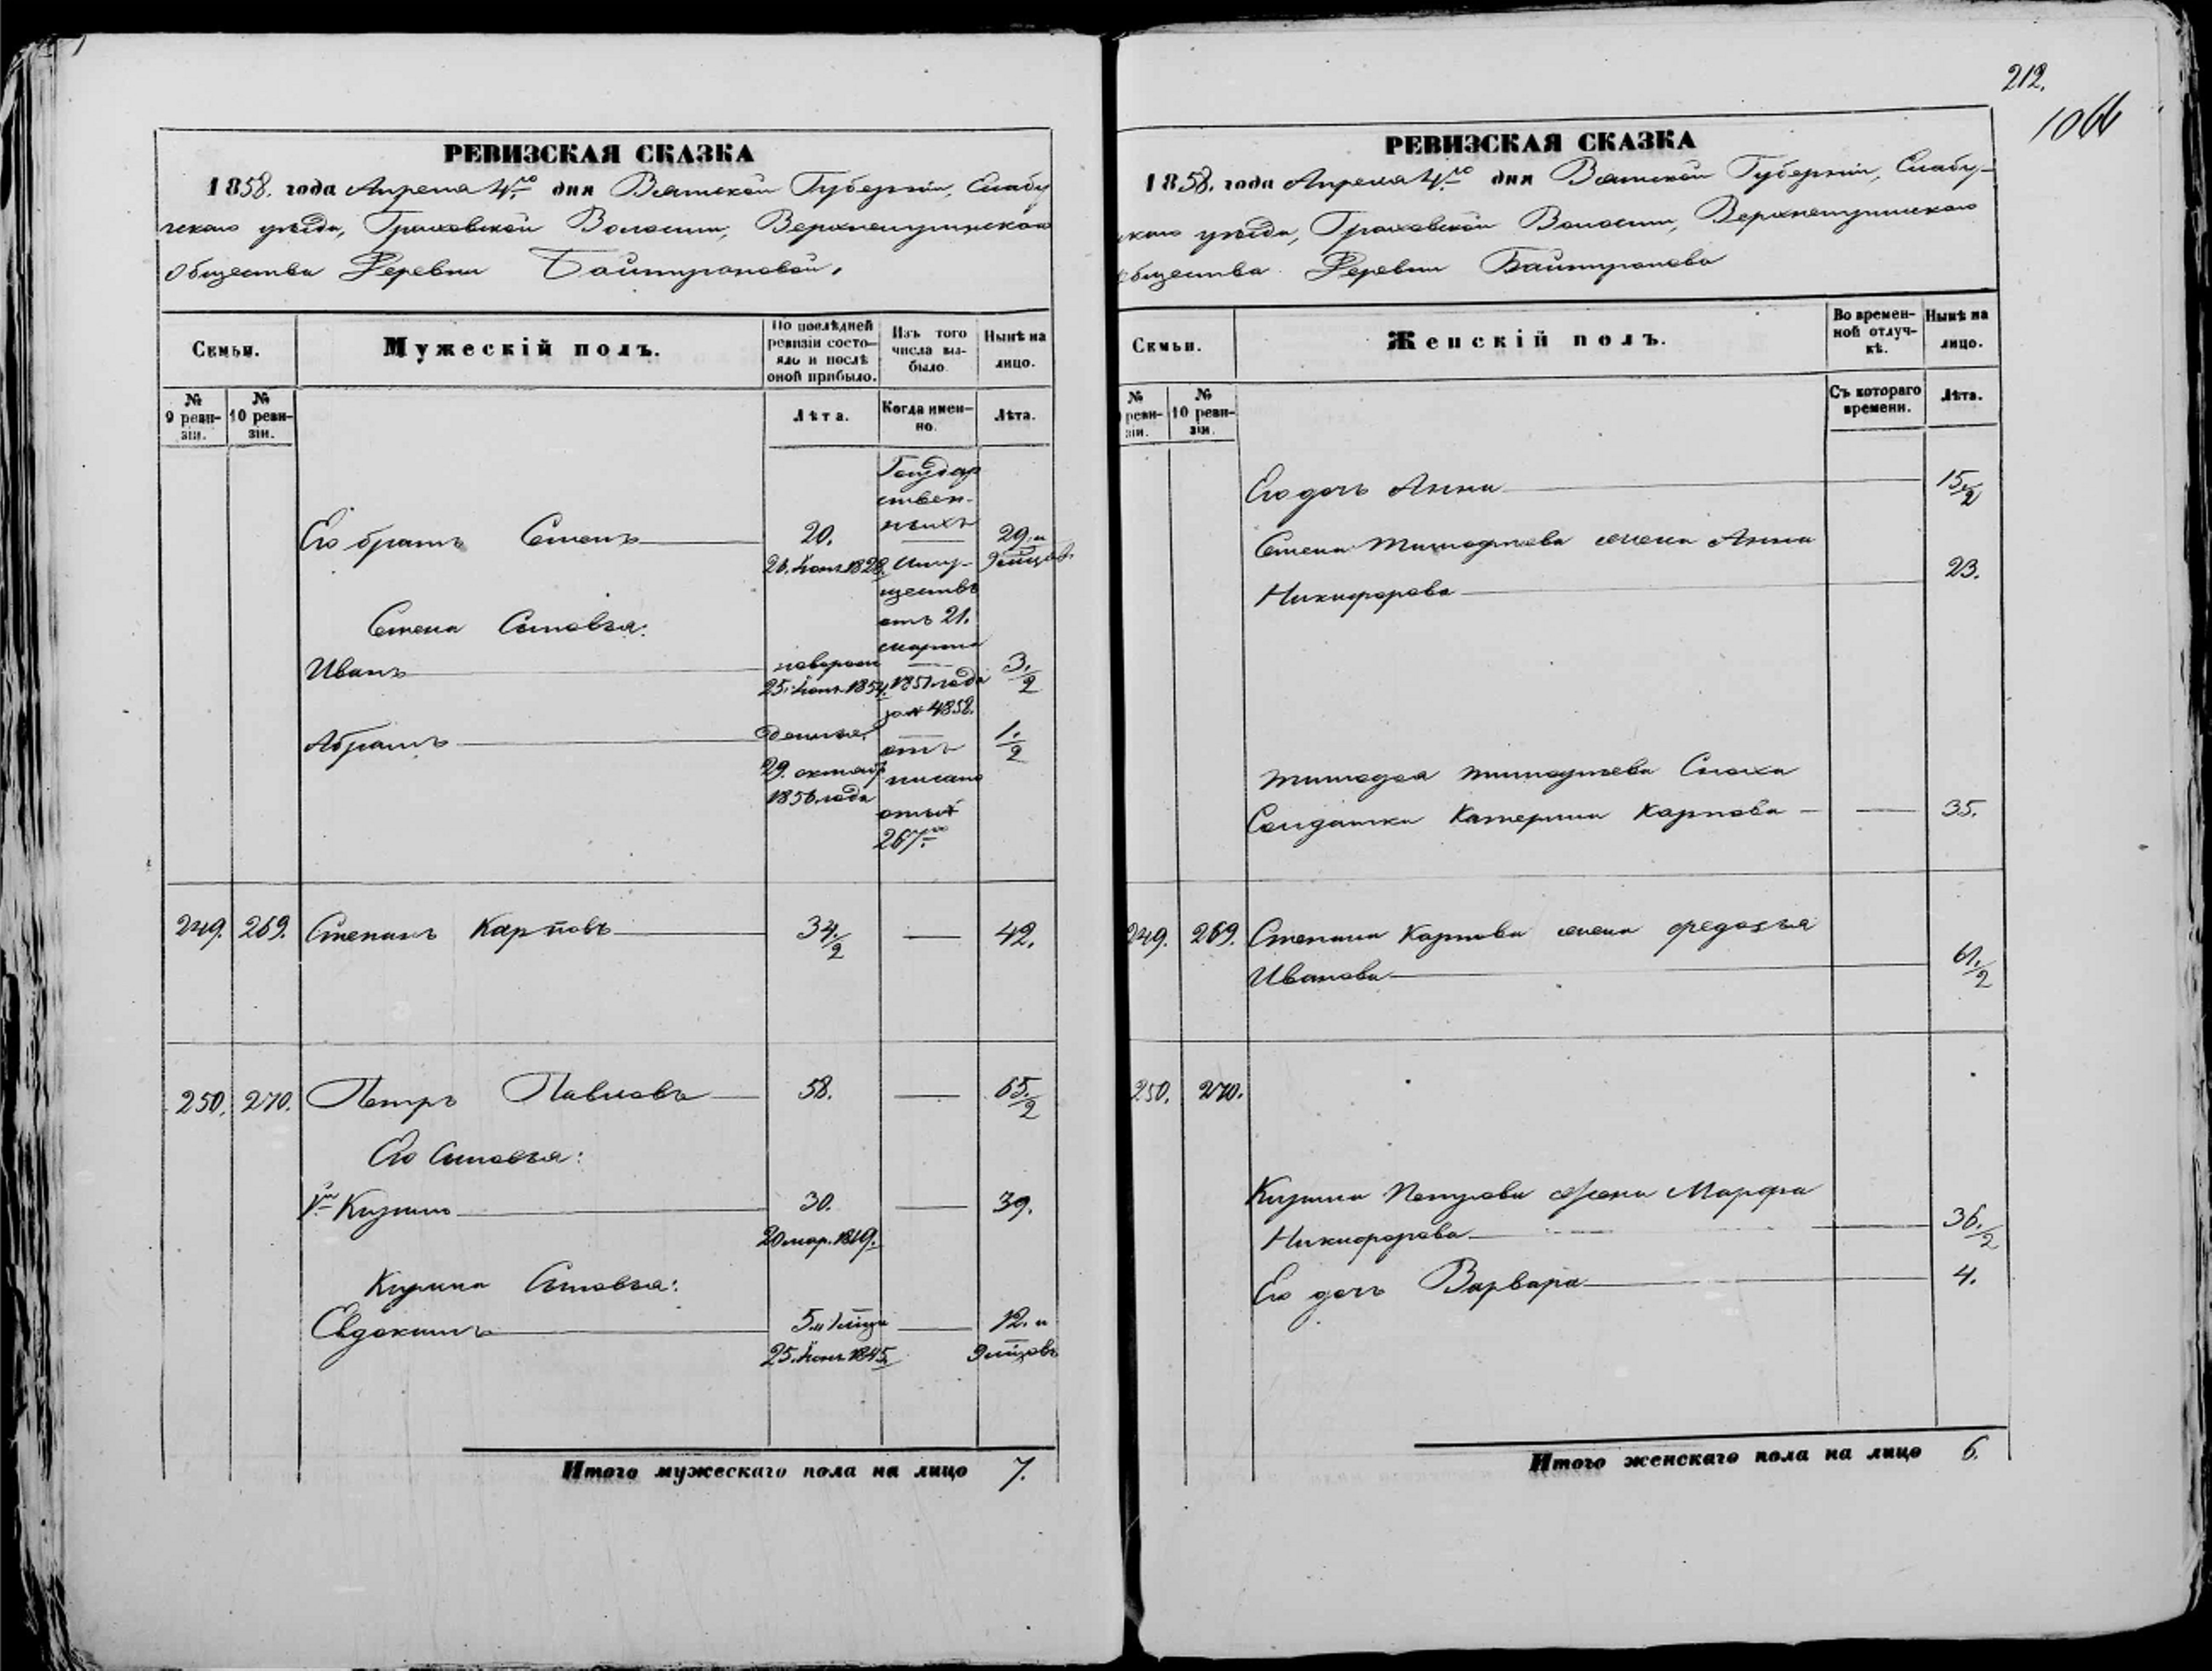 212.
1066
РЕВИЗСКАЯ СКАЗКА
1858. года Апреля 4го дня Вятской Губернии, Елабу
гскаго уѣзда, Граховской Волости, Верхнетуминскаго
общества Деревни Баитурановой.
Семьи.
Мужескій полъ.
По послѣдней
ревизіи состо-
яло и послѣ
оной прибыло.
Изъ того
числа вы-
было.
Нынѣ на
лицо.
№
9 реви-
зіи.
№
10 реви-
зіи.
Лѣта.
Когда имен-
но.
Лѣта.
Государ
ствен-
ныхъ
Его братъ Семенъ 20. 29. и
21. Іюня 1828. Иму- 9 мѣсяцов.
ществъ
отъ 21.
Семена Сыновья:
марта
Иванъ новорож 3./2
25. Іюня 1854. 1851 года
за № 4858.
Абрамъ тоже 1./2
отъ
29. октября писано
1856 года
отъ №
267го
249. 269. Степанъ Карповъ 34./2 42.
250. 270. Петръ Павловъ 58. 65./2
Его Сыновья:
1й Кузьма 30. 39.
20 мар. 1819.
Кузьмы Сыновья:
Евдокимъ 5. и 1 мѣсяца 12. и
25. Іюня 1845. 9 мѣсяцовъ
Итого мужескаго пола на лицо 7.
РЕВИЗСКАЯ СКАЗКА
1858. года Апреля 4го дня Вятской Губернии, Елабу-
скаго уѣзда, Граховской Волости, Верхнетуминскаго
общества Деревни Баитураново
Семьи.
Женскій полъ.
Во времен-
ной отлуч-
кѣ.
Нынѣ на
лицо.
№
реви-
зіи.
№
10 реви-
зіи.
Съ котораго
времени.
Лѣта.
Его дочь Анна 15./2
Семена Тимофѣева жена Анна
Никифорова 23.
Тимофея Тимофѣева Сноха
Солдатка Катерина Карпова 35.
249. 269. Степана Карпова жена Федосья
Иванова 61./2
250. 270.
Кузьмы Петрова жена Марфа
Никифорова 36./2
Его дочь Варвара 4.
Итого женскаго пола на лицо 6.